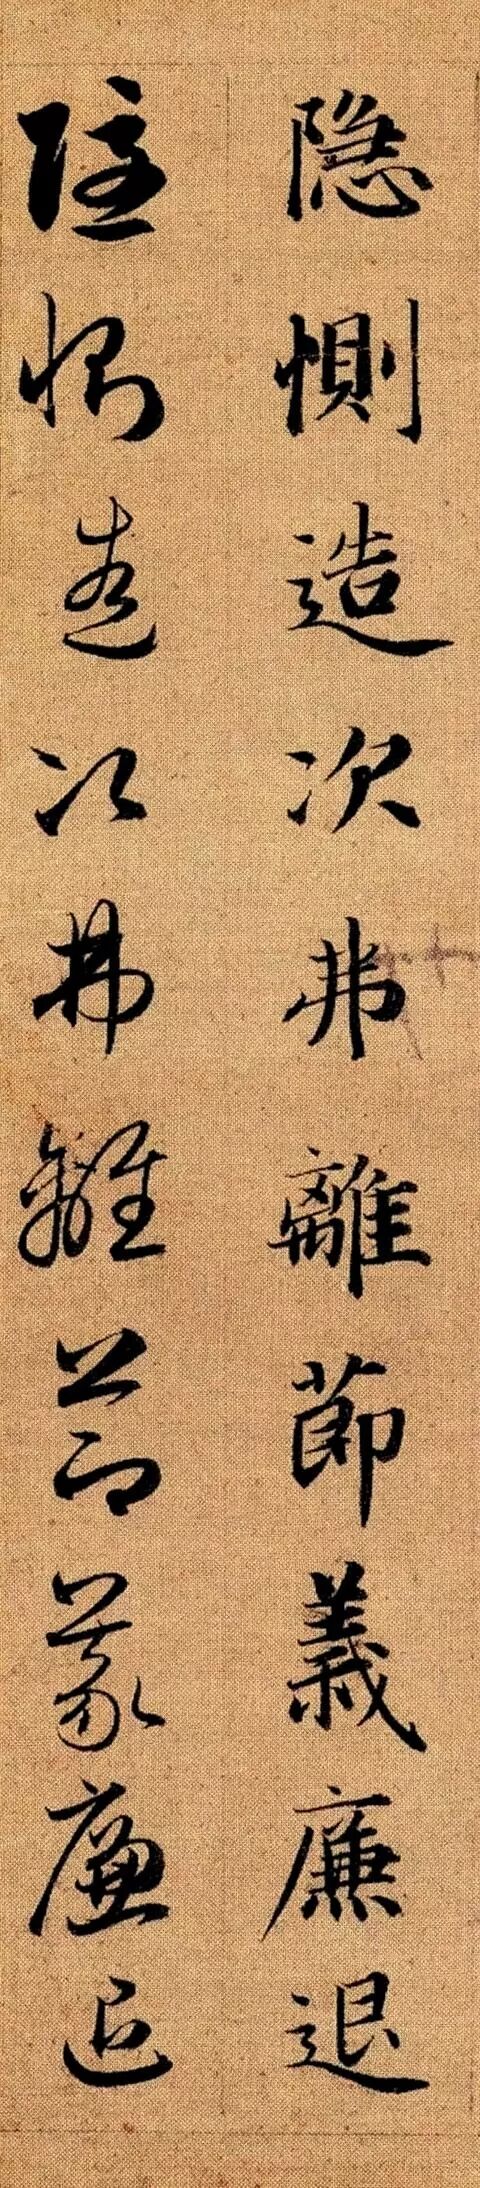 隐恻造次弗離節義廉退
隐恻造次弗離節義廉退